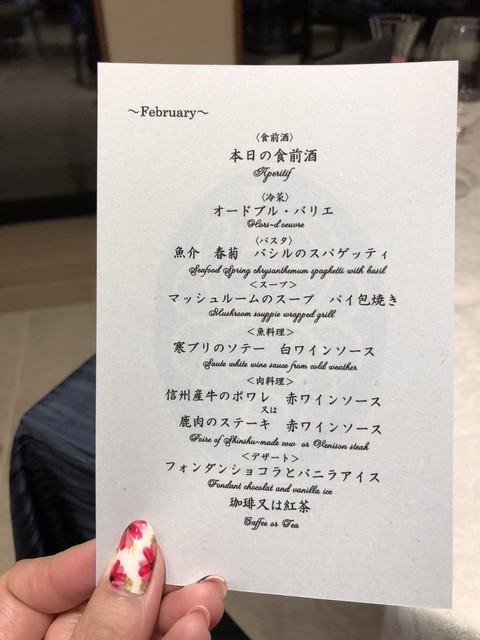 ～February～
〈食前酒〉
本日の食前酒
Aperitif
〈冷菜〉
オードブル・バリエ
Hors-d'oeuvre
〈パスタ〉
魚介　春菊　バジルのスパゲッティ
Seafood Spring chrysanthemum spaghetti with basil
＜スープ＞
マッシュルームのスープ　パイ包焼き
Mushroom souppie wrapped grill
＜魚料理＞
寒ブリのソテー　白ワインソース
Saute white wine sauce from cold weather
＜肉料理＞
信州産牛のポワレ　赤ワインソース
又は
鹿肉のステーキ　赤ワインソース
Poire of Shinshu-made cow or Venison steak
＜デザート＞
フォンダンショコラとバニラアイス
Fondant chocolat and vanilla ice
珈琲又は紅茶
Caffee or Tea